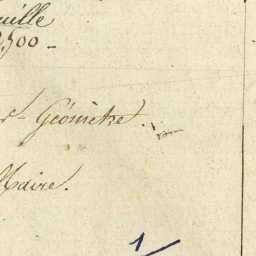 uille
2,500 -
st Géomètre.
Maire.
1